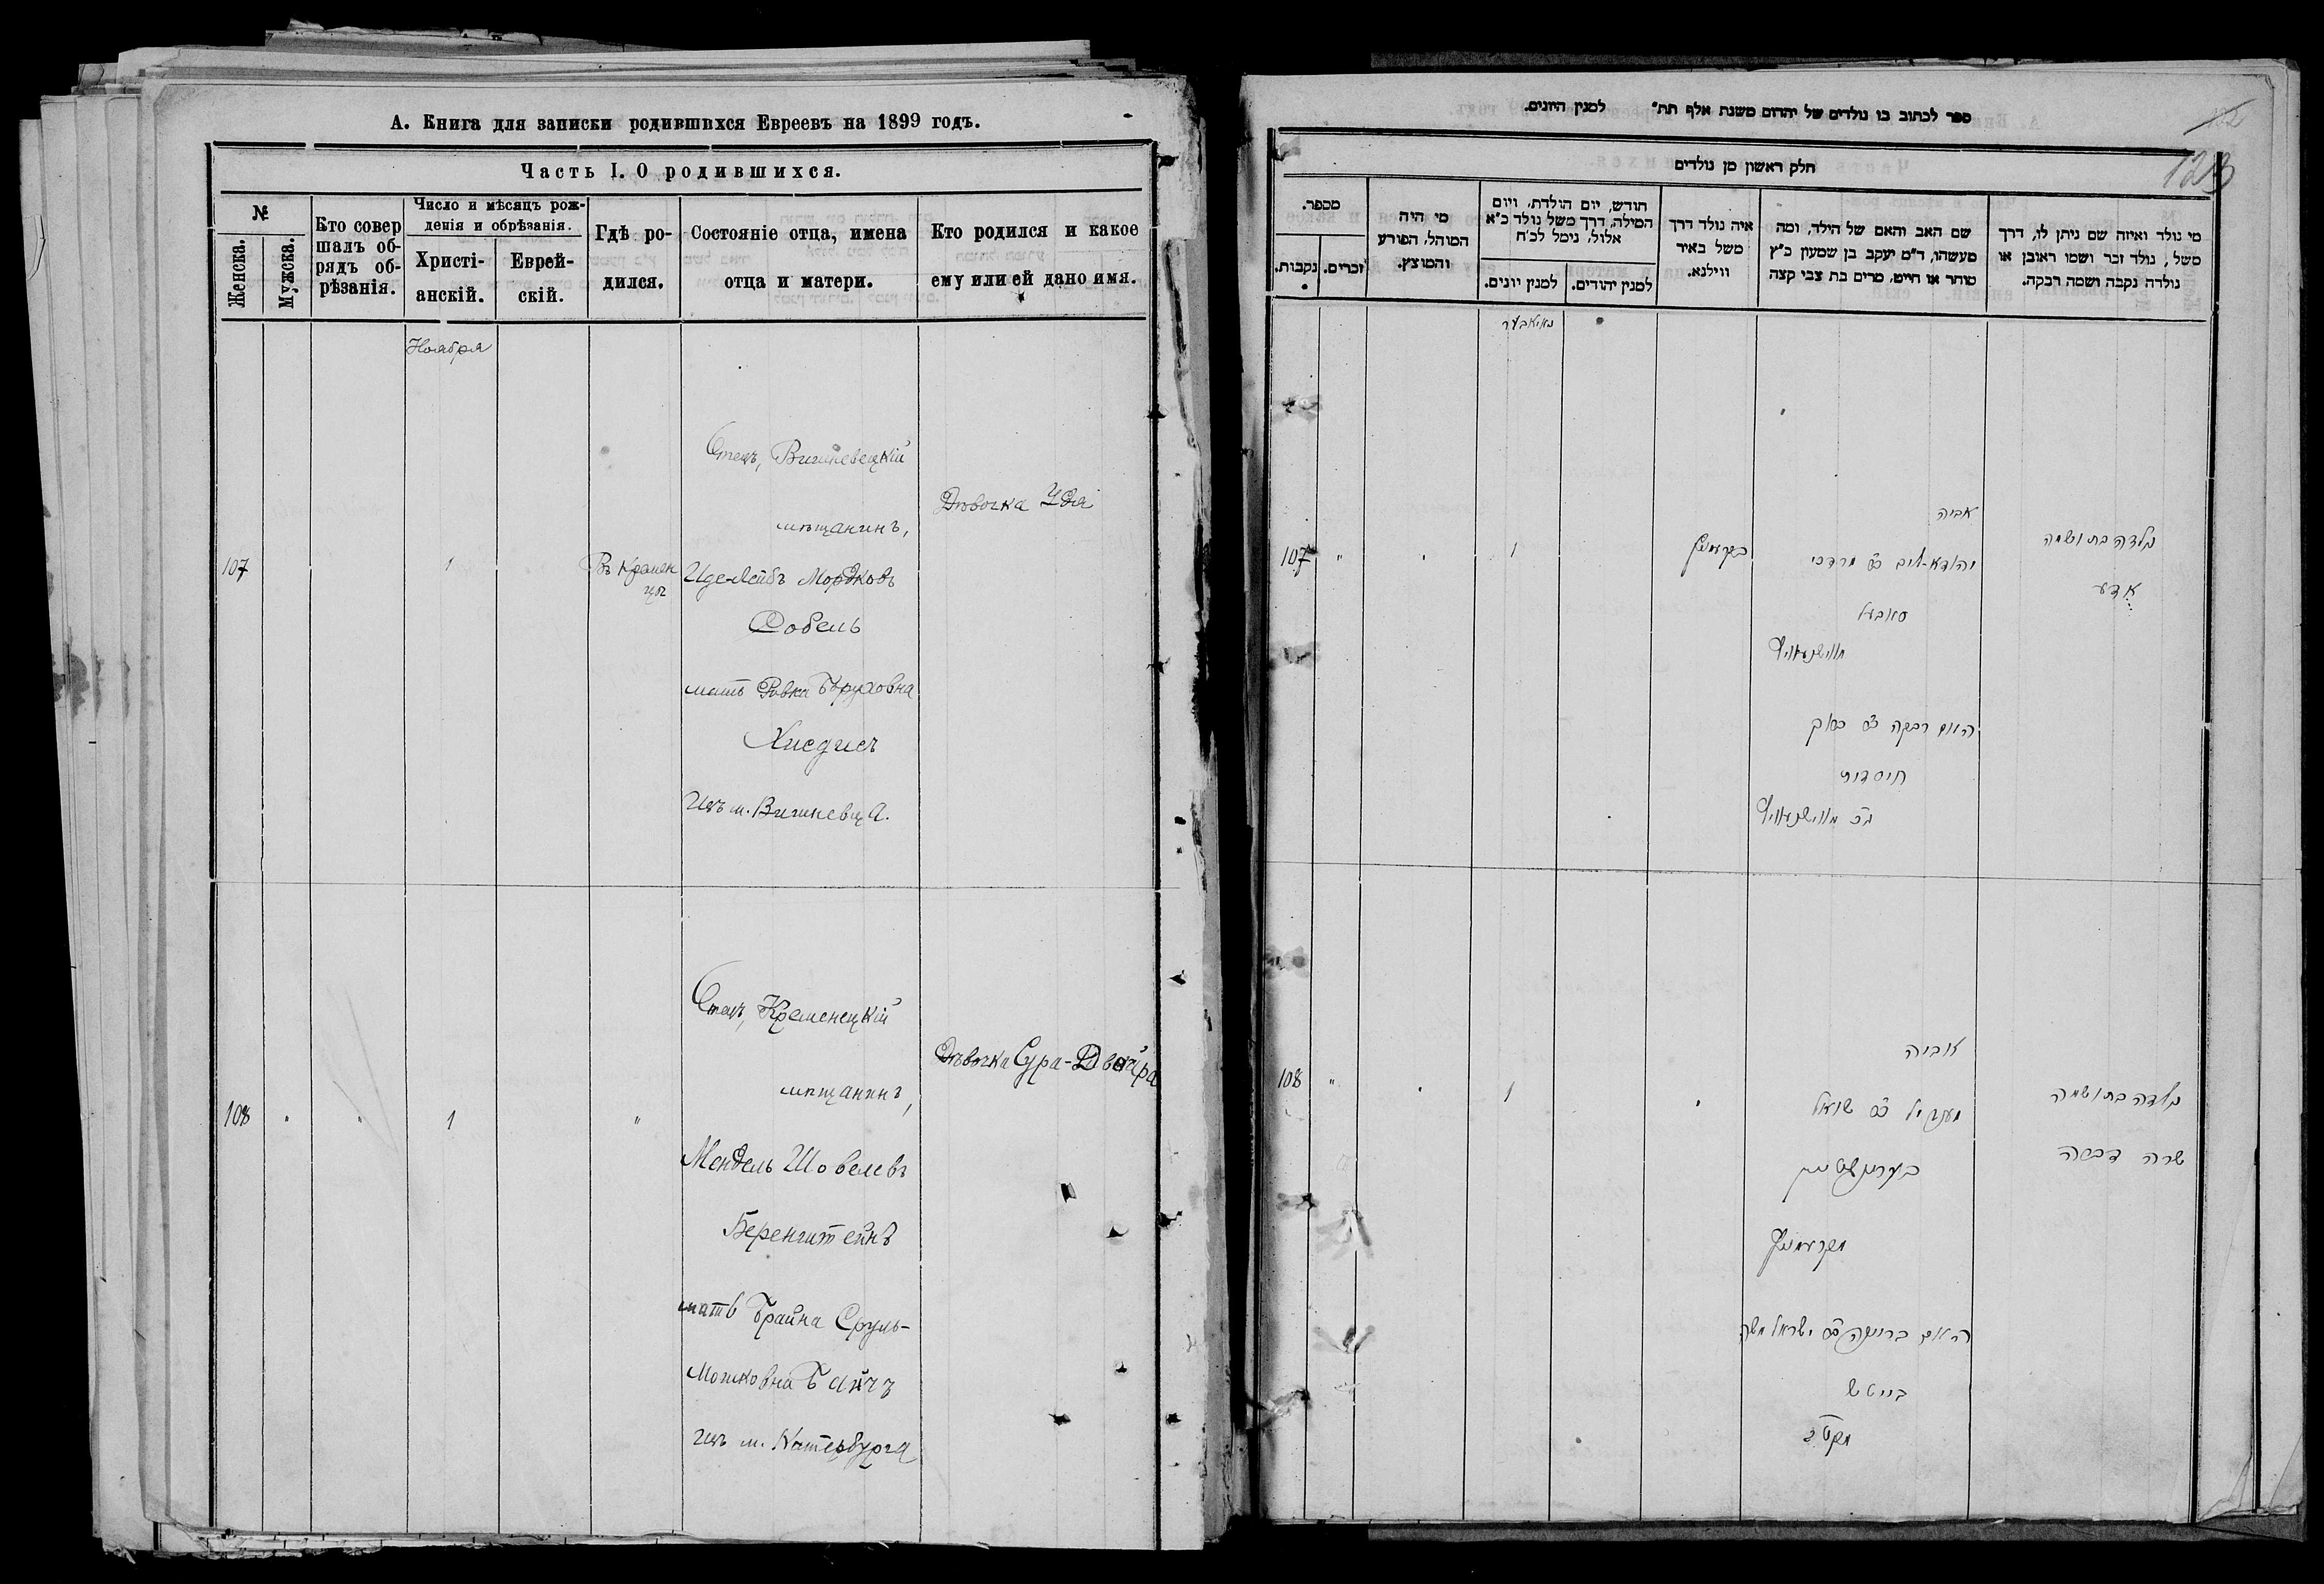 А. Книга для записки родившихся Евреевъ на 1899 годъ.
Часть I. О родившихся.
№
Женска.
Мужска.
Кто совер
шалъ об-
рядъ об-
рѣзанія.
Число и мѣсяцъ рож-
денія и обрѣзанія.
Христі-
анскій.
Еврей-
скій.
Гдѣ ро-
дился.
Состояніе отца, имена
отца и матери.
Кто родился и какое
ему или ей дано имя.
Ноября
107
1
Въ Кремен
цѣ
Отецъ, Вишневецкій
мѣщанинъ,
Иде-Лейбъ Мордковъ
Собель
мать Ривка Боруховна
Хисдисъ
Изъ м. Вишневца.
Дѣвочка Удя
108
"
"
1
"
Отецъ, Кременецкій
мѣщанинъ,
Мендель Шовелевъ
Беренштейнъ
мать Брайна Сруль-
Мошковна Байчъ
Изъ м. Катербурга
Дѣвочка Сура-Двойра
ספר לכתוב בו נולדים של יהדום משנת אלף תת" למנין היונים.
123
חלק ראשון מן נולדים
מי נולד ואיזה שם ניתן לו, דרך
משל, נולד זכר ושמו ראובן או
נולדה נקבה ושמה רבקה.
שם האב והאם של הילד, ומה
מעשהו, ד"מ יעקב בן שמעון כ"ץ
סוחר או חייט, מרים בת צבי קצה
איה נולד דרך
משל באיר
ווילנא.
חודש, יום הולדת, ויום
המילה, דרך משל נולד כ"א
אלול, נימל לכ"ח
למנין יהודים.
למנין יונים.
מי היה
המוהל, הפורע
והמוצץ.
מספר.
זכרים.
נקבות.
נאיאבער
107
"
1
בקרעמניץ
אביה
יהודא-ליב ב"מ מרדכי
סאבעל
מווישניעוויץ
האם רבקה ב"מ ברוך
חיסדיס
ג"כ מווישניעוויץ
נולדה בת ושמה
אדע
108
"
1
"
אביה
מענדיל ב"מ שאול
בערינשטיין
מקרעמניץ
האם בריינה ב"מ ישראל משה
בייטש
נולדה בת ושמה
שרה דבורה